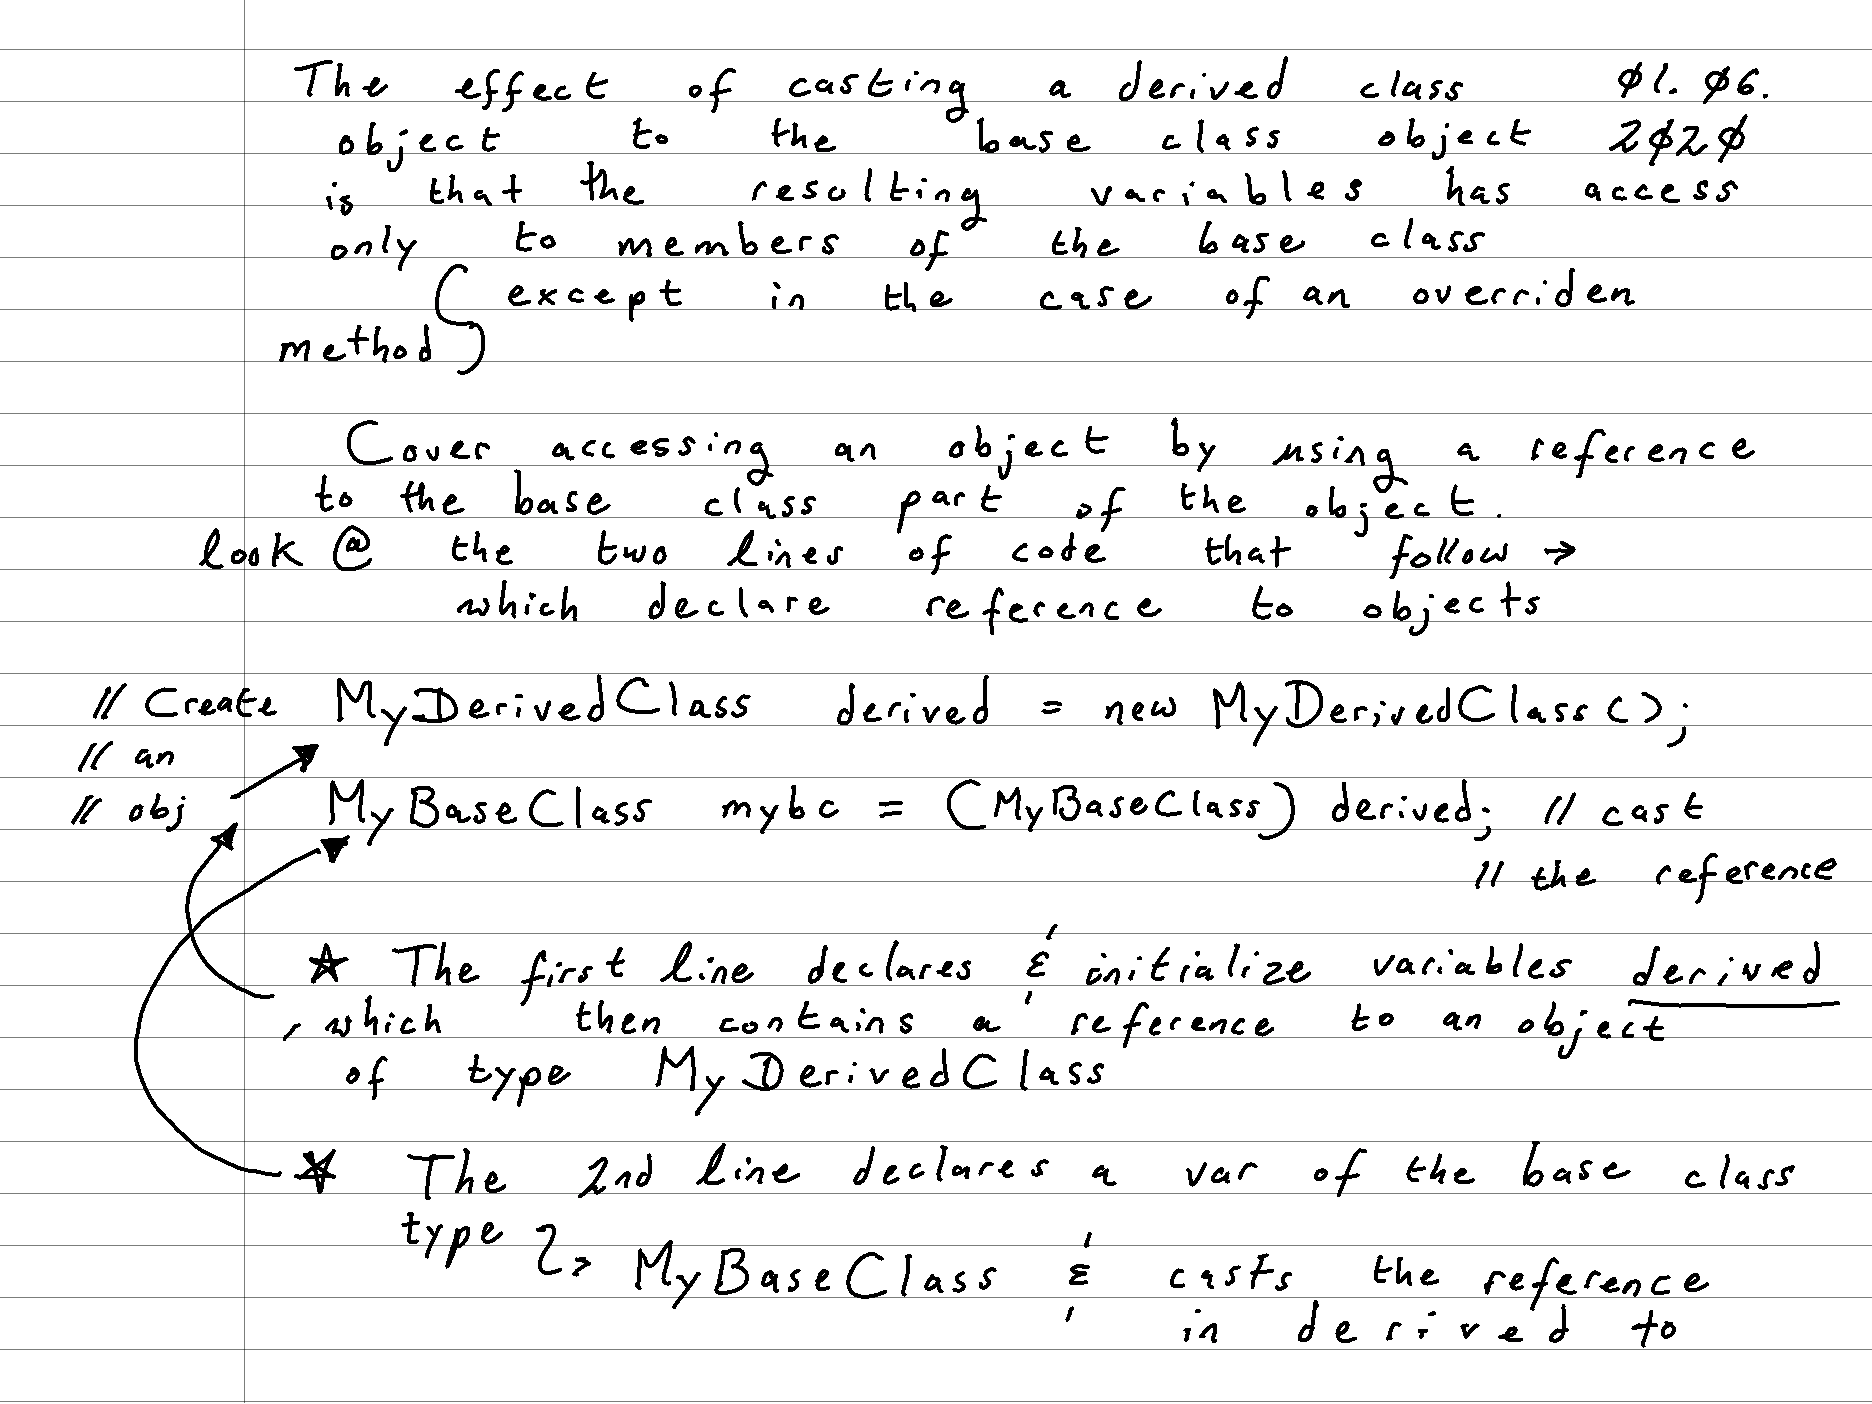 The effect of casting a derived class ø1. ø6.
object to the base class object 2ø2ø
is that the resulting variables has access
only to members of the base class
( except in the case of an overriden
method )
Cover accessing an object by using a reference
to the base class part of the object.
look @ the two lines of code that follow →
which declare reference to objects
// Create MyDerivedClass derived = new MyDerivedClass();
// an
// obj MyBaseClass mybc = (MyBaseClass) derived; // cast
// the reference
☆ The first line declares & initialize variables derived
, which then contains a reference to an object
of type MyDerivedClass
☆ The 2nd line declares a var of the base class
type
MyBaseClass & casts the reference
in derived to